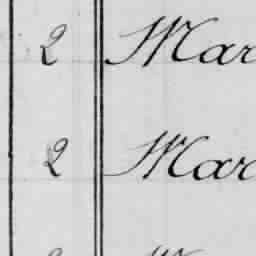 2 Mar
2 Mar